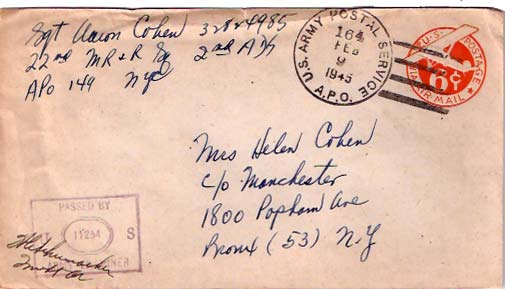 Sgt Aaron Cohen 32824985
22nd MR+R Sq 2nd ADG
APO 149 NYC
U.S. ARMY POSTAL SERVICE
164
FEB
9
1945
A.P.O.
U.S. POSTAGE
6¢
VIA AIR MAIL
Mrs Helen Cohen
c/o Manchester
1800 Popham Ave
Bronx (53) N.Y
PASSED BY
11254 S
EXAMINER